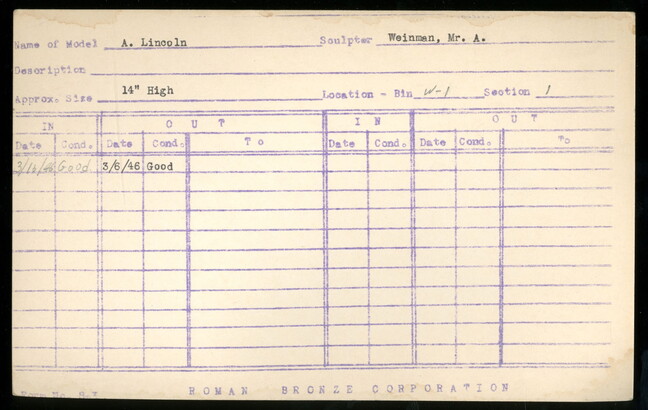 Name of Model A. Lincoln Sculptor Weinman, Mr. A.
Description
Approx. Size 14" High Location - Bin W-1 Section 1
IN OUT IN OUT
Date Cond. Date Cond. To Date Cond. Date Cond. To
Good 3/6/46 Good
ROMAN BRONZE CORPORATION